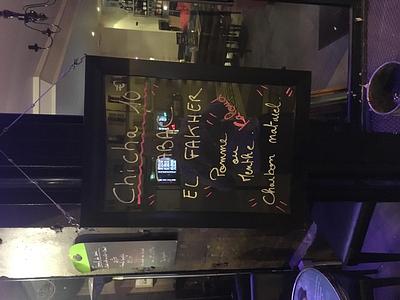 Chicha 10€
TABAC
EL FAKHER
Pomme
ou
Menthe
Charbon naturel